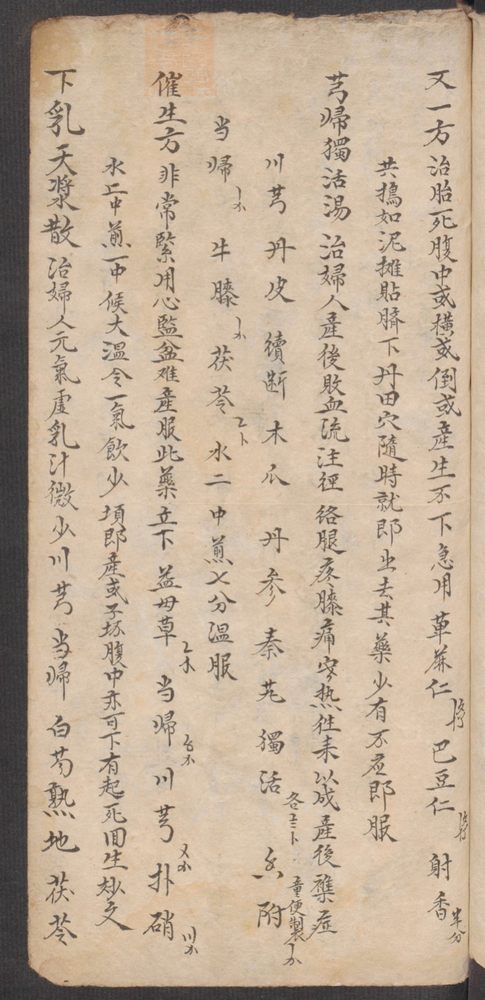 又一方治胎死腹中或橫或倒或產生不下急用萆蔴仁 巴豆仁 射香半分
共搗如泥攤貼臍下丹田穴隨時就即生去其藥少有不應即服
芎歸獨活湯治婦人產後敗血流注經絡腿疼膝痛寒熱往來以成產後襍症
川芎 丹皮 續断 木瓜 丹參 秦艽 獨活 附童便製
当歸 牛膝 茯苓 水二中煎七分温服
催生方非常緊用心監盆难產服此藥立下 益母草 当歸 川芎 扑硝
水二中煎一中候大温令一氣飲少頃即產或子坏腹中亦可下有起死回生玅文
下乳天漿散治婦人元氣虛乳汁微少川芎 当歸 白芍 熟地 茯苓